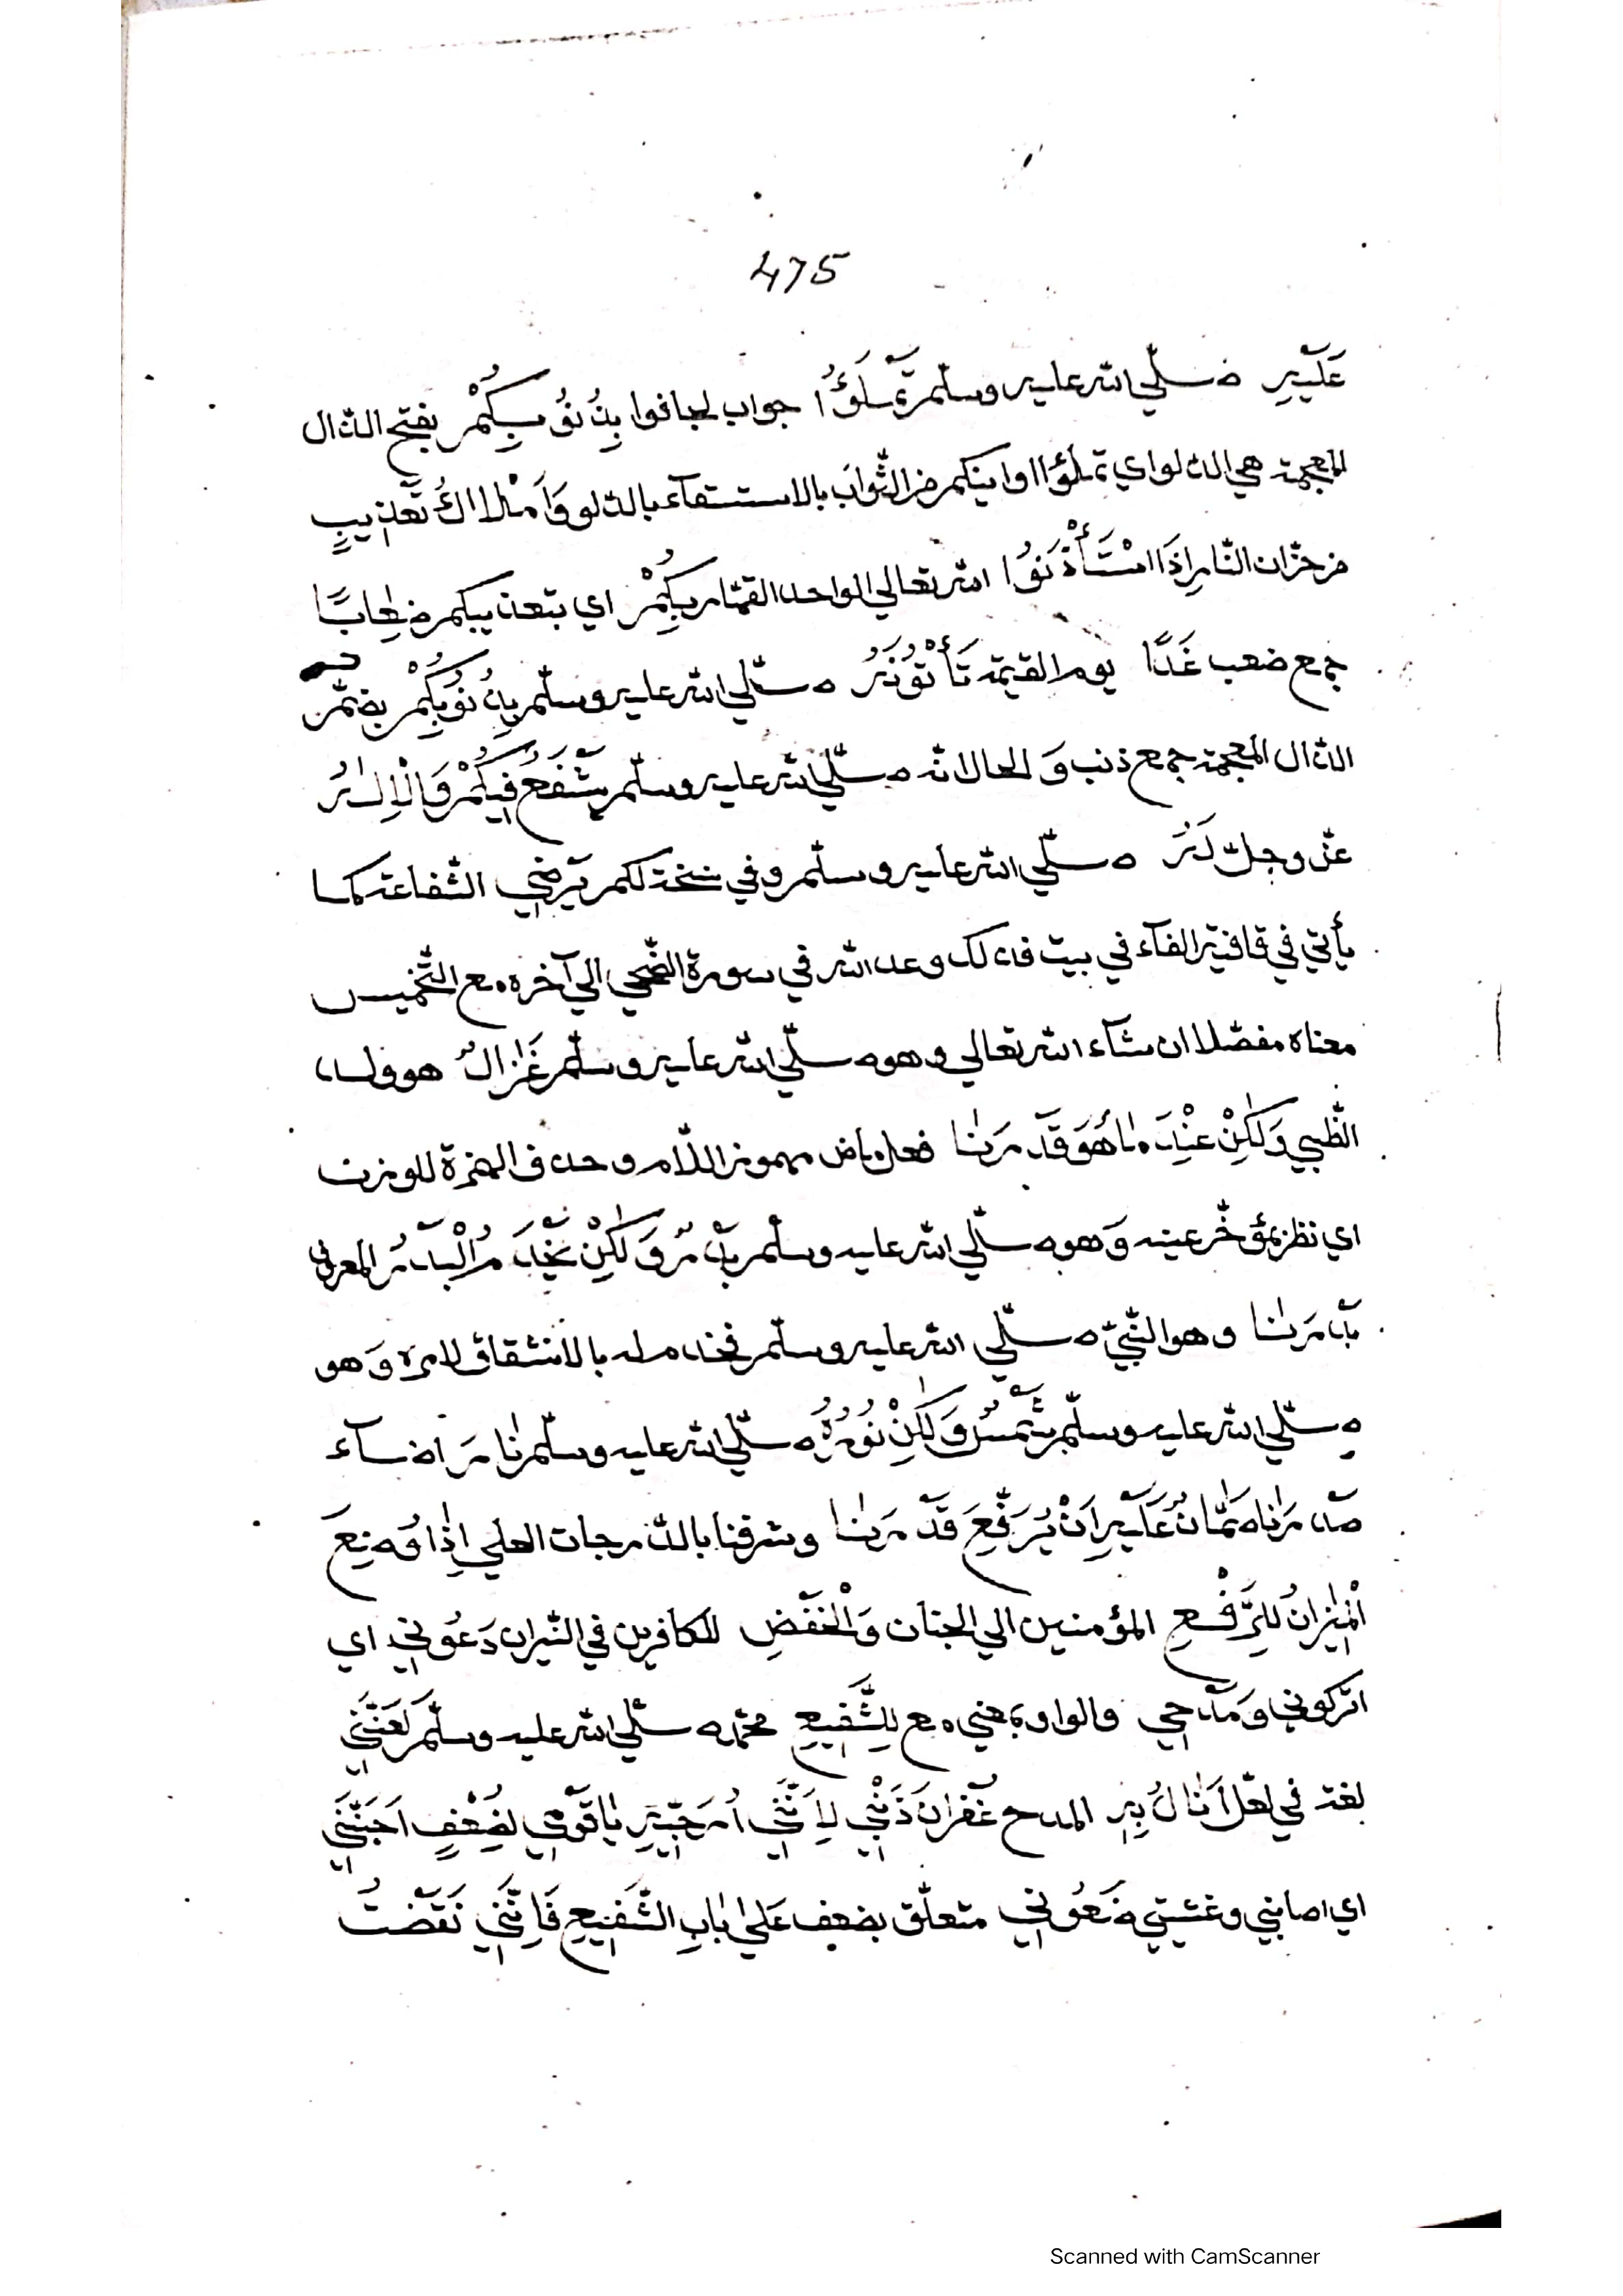 475
عَلَيْهِ صلّي الله عليه وسلّم تَمْلَؤُا جواب لجافوا بِذَنُوبِكُمْ بفتح الذال
المعجمة هي الدلو اي تملؤا اوانيكم من الثّواب بالاستقآء بالدلو وَاَمْلَاكُ تَعْذِيبٍ
من خزّان النّار اِذَا اسْتَأْذَنُوا الله تعالي الواحد القهّار بِكُمْ اي بتعذيبكم صِعَابًا
جمع صعب غَدًا يوم القيٰمة تَأْتُونَهُ صلّي الله عليه وسلّم بِذُنُوبِكُمْ بضمّ
الذال المعجمة جمع ذنب وَ الحال انه صلّي الله عليه وسلّم يَشْفَعُ فِيكُمْ وَالْاِلٰهُ
عزّ وجلّ لَهُ صلّي الله عليه وسلّم وفي نسخة لكم يَرْضَي الشفاعة كما
يأتي في قافية الفآء في بيت فذلك وعد الله في سورة الضّحي الي آخره مع التّخميس
معناه مفصّلا ان شآء الله تعالي وهو صلّي الله عليه وسلّم غَزَالٌ هو ولد
الظّبي وَلٰكِنْ عِنْدَمَا هُوَ قَدْ رَنَا فعل ماض مهموز اللّام وحذف الهمزة للوزن
اي نظر بمؤخّر عينه وَهو صلّي الله عليه وسلّم بَدْرٌ وَلٰكِنْ يَخْدُمُ الْبَدْرُ المعروف
بَدْرَنَا وهو النّبيّ صلّي الله عليه وسلّم فخدم له بالانشقاق لامره وَهو
صلّي الله عليه وسلّم شَمْسٌ وَلٰكِنْ نُورُهُ صلّي الله عليه وسلّم نَارَ اضآء
صَدْرَنَا ضَمَانٌ عَلَيْهِ اَنْ يُرَفِّعَ قَدْرَنَا وشرفنا بالدّرجات العلي اِذَا وُضِعَ
الْمِيزَانُ لِلرَّفْعِ المؤمنين الي الجنان وَالْخَفْضِ للكافرين في النّيران دَعُونِي اي
اتركوني وَمَدْحِي والواو بمعني مع لِلشَّفِيعِ محمّد صلّي الله عليه وسلّم لَعَنَّنِي
لغة في لعلّ اَنَالُ بِهِ المدح غُفْرَانَ ذَنْبِي لِاَنَّنِي اُرَجِّيهِ يَا قَوْمِي لِضُعْفٍ اَجَنَّنِي
اي اصابني وغشيني ضَعُونِي متعلّق بضعف عَلٰي بَابِ الشَّفِيعِ فَاِنَّنِي نَقَضْتُ
Scanned with CamScanner